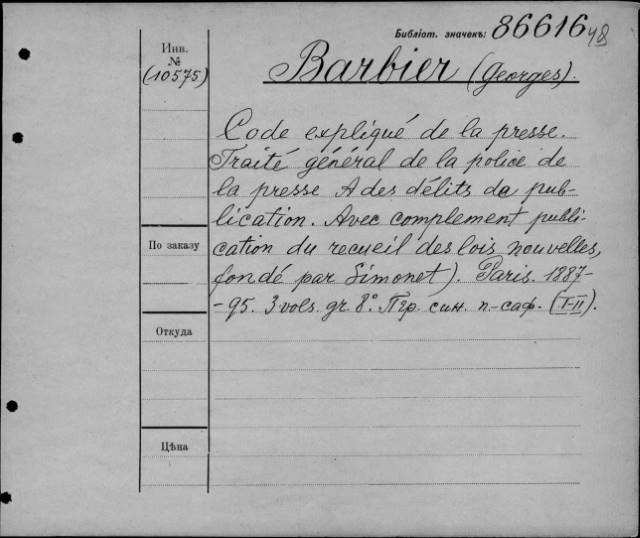 Библіот. значекъ: 86616 48
Инв.
№
(10575)
Barbier (Georges).
Code expliqué de la presse.
Traité général de la police de
la presse & des délits de pub-
lication. Avec complement publi-
По заказу
cation du recueil des lois nouvelles,
fondé par Simonet). Paris. 1887-
-95. 3 vols. gr. 8°. Пгр. син. п.-саф. (I-II).
Откуда
Цѣна